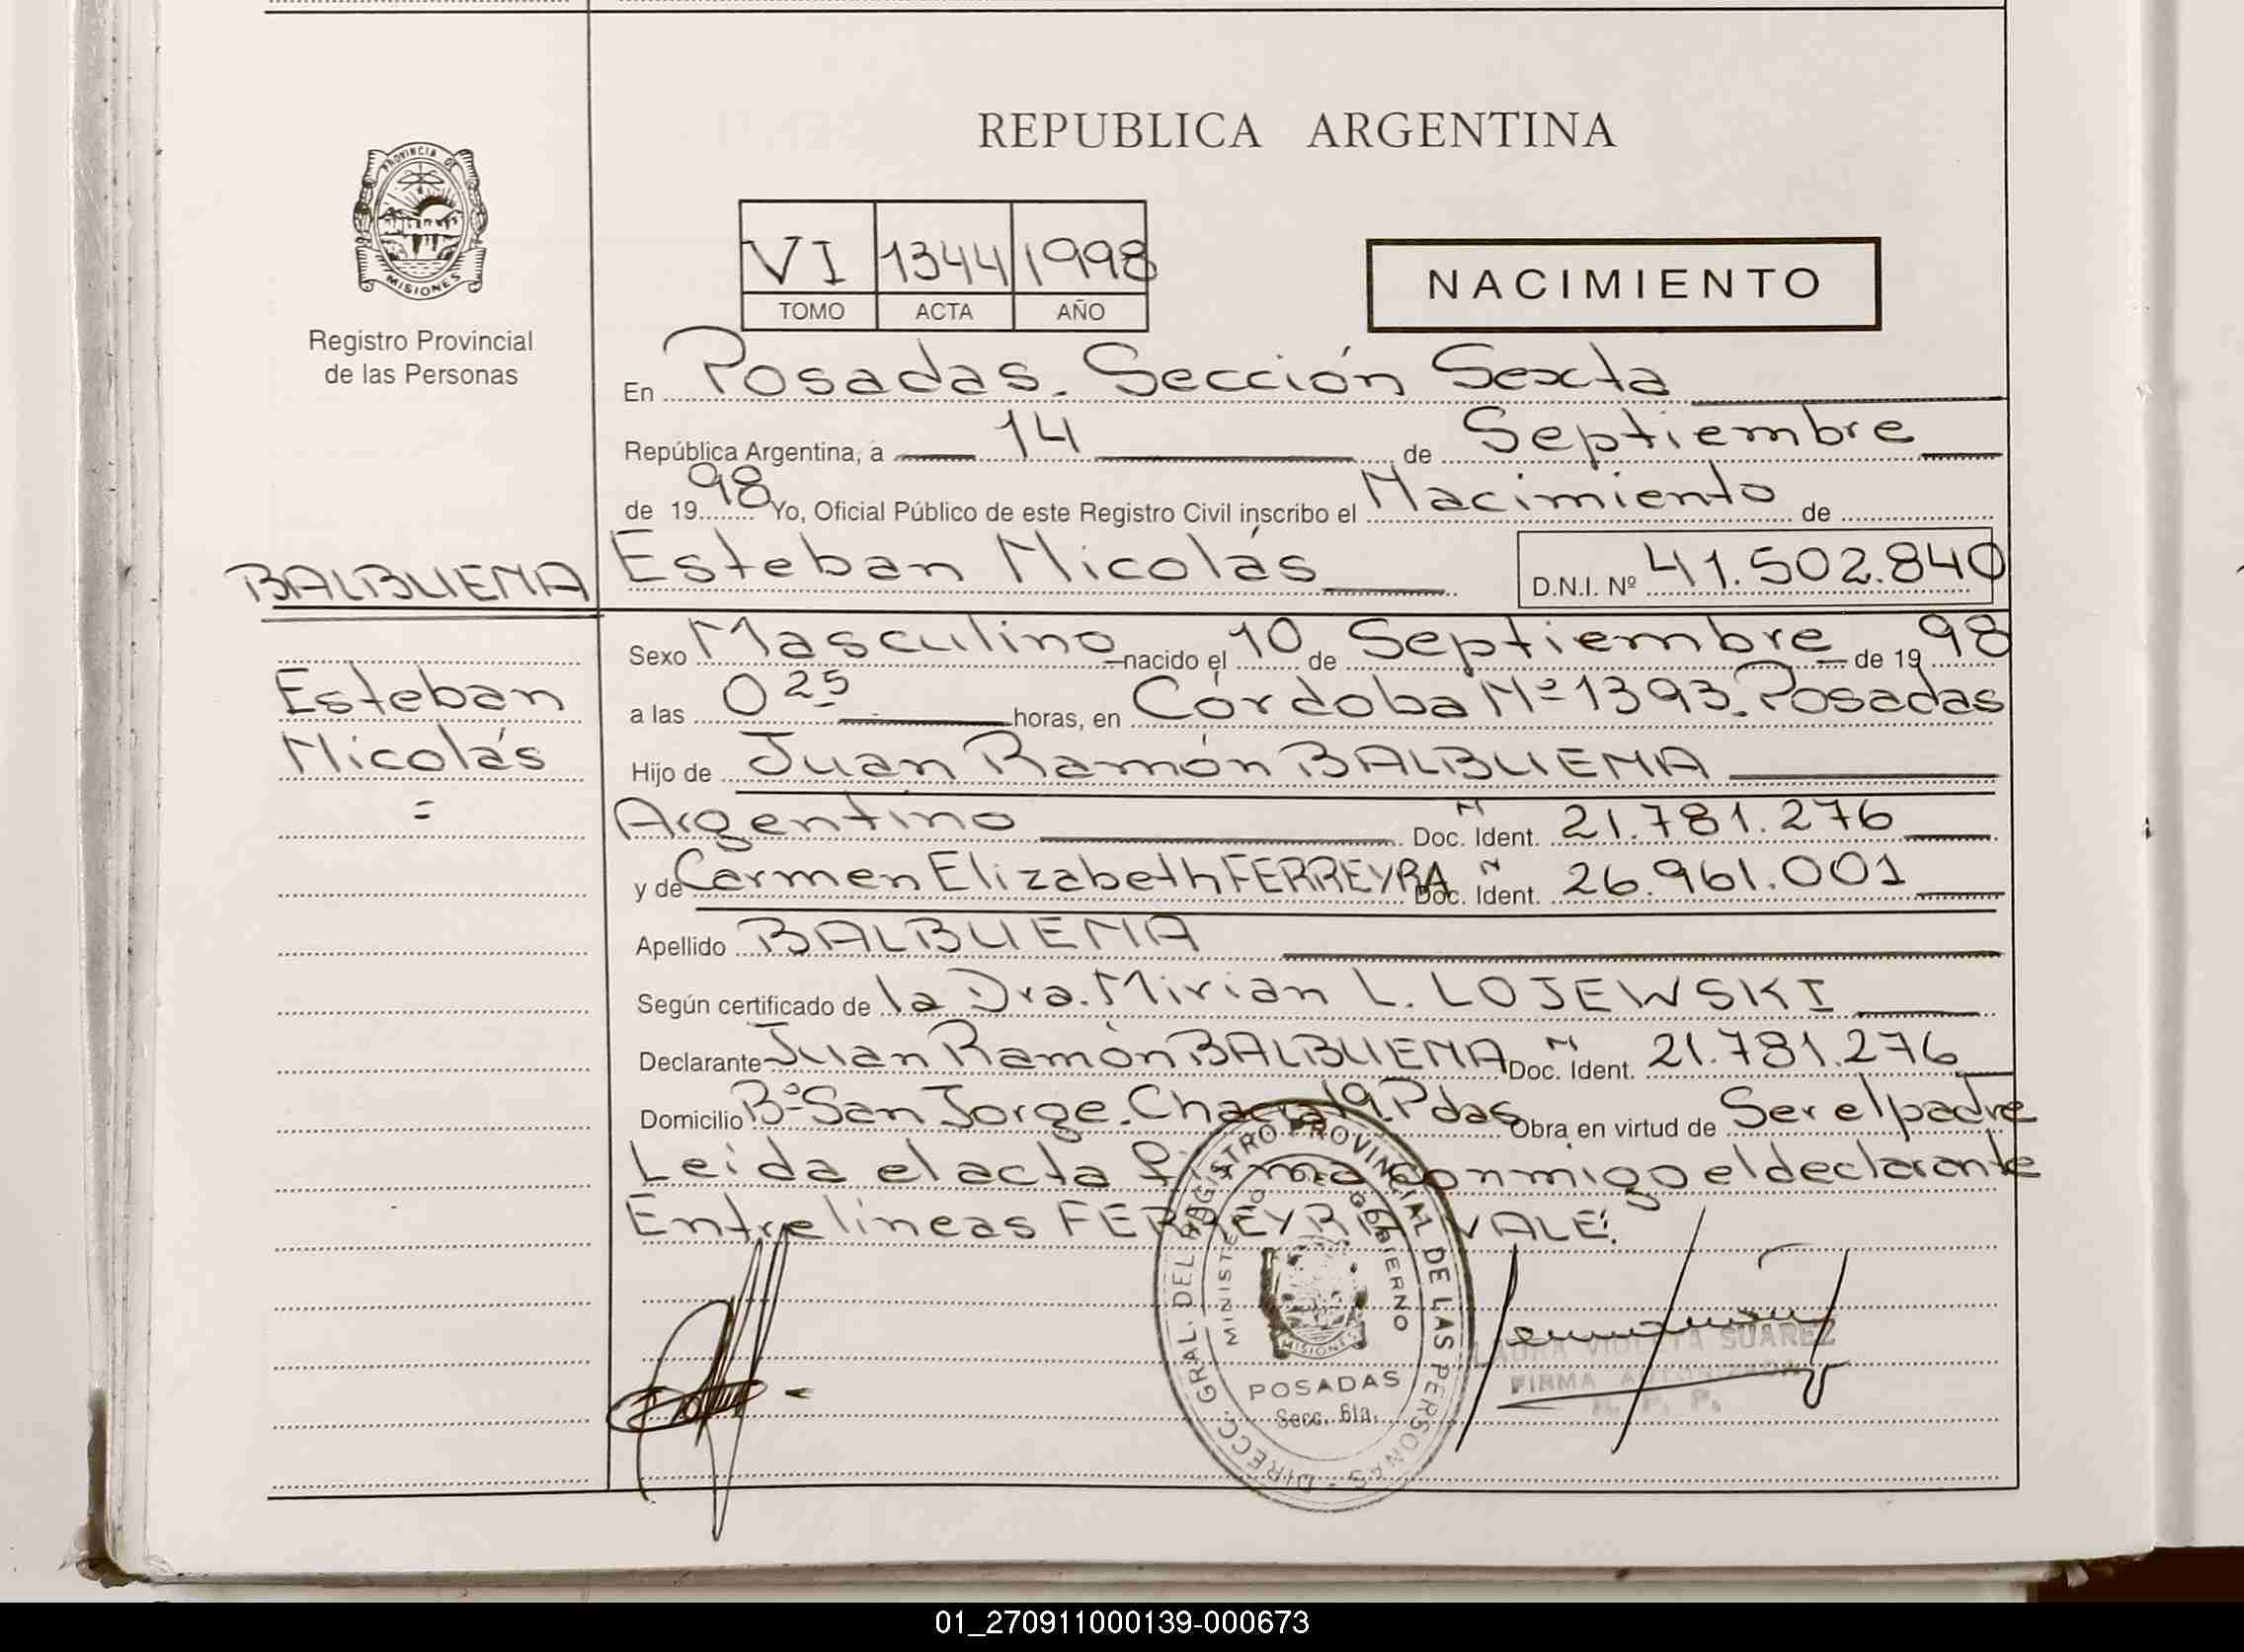 REPUBLICA ARGENTINA
PROVINCIA DE
MISIONES
Registro Provincial
de las Personas
VI 1344 1998
TOMO ACTA AÑO
NACIMIENTO
En Posadas. Sección Sexta
República Argentina, a 14 de Septiembre
de 1998 Yo, Oficial Público de este Registro Civil inscribo el Nacimiento de
BALBUENA
Esteban Nicolás D.N.I. Nº 41.502.840
Esteban
Nicolás
=
Sexo Masculino nacido el 10 de Septiembre de 1998
a las 0 25 horas, en Córdoba Nº 1393. Posadas
Hijo de Juan Ramón BALBUENA
Argentino N Doc. Ident. 21.781.276
y de Carmen Elizabeth FERREYRA N Doc. Ident. 26.961.001
Apellido BALBUENA
Según certificado de la Dra. Mirian L. LOJEWSKI
Declarante Juan Ramón BALBUENA N Doc. Ident. 21.781.276
Domicilio Bº San Jorge. Chacra 19. Pdas Obra en virtud de Ser el padre
Leída el acta firma conmigo el declarante
Entre lineas FERREYRA VALE.
DIRECC. GRAL. DEL REGISTRO PROVINCIAL DE LAS PERSONAS
MINISTERIO DE GOBIERNO
MISIONES
POSADAS
Secc. 6ta.
LAURA VIOLETA SUAREZ
FIRMA AUTORIZADA
R. P. P.
01_270911000139-000673